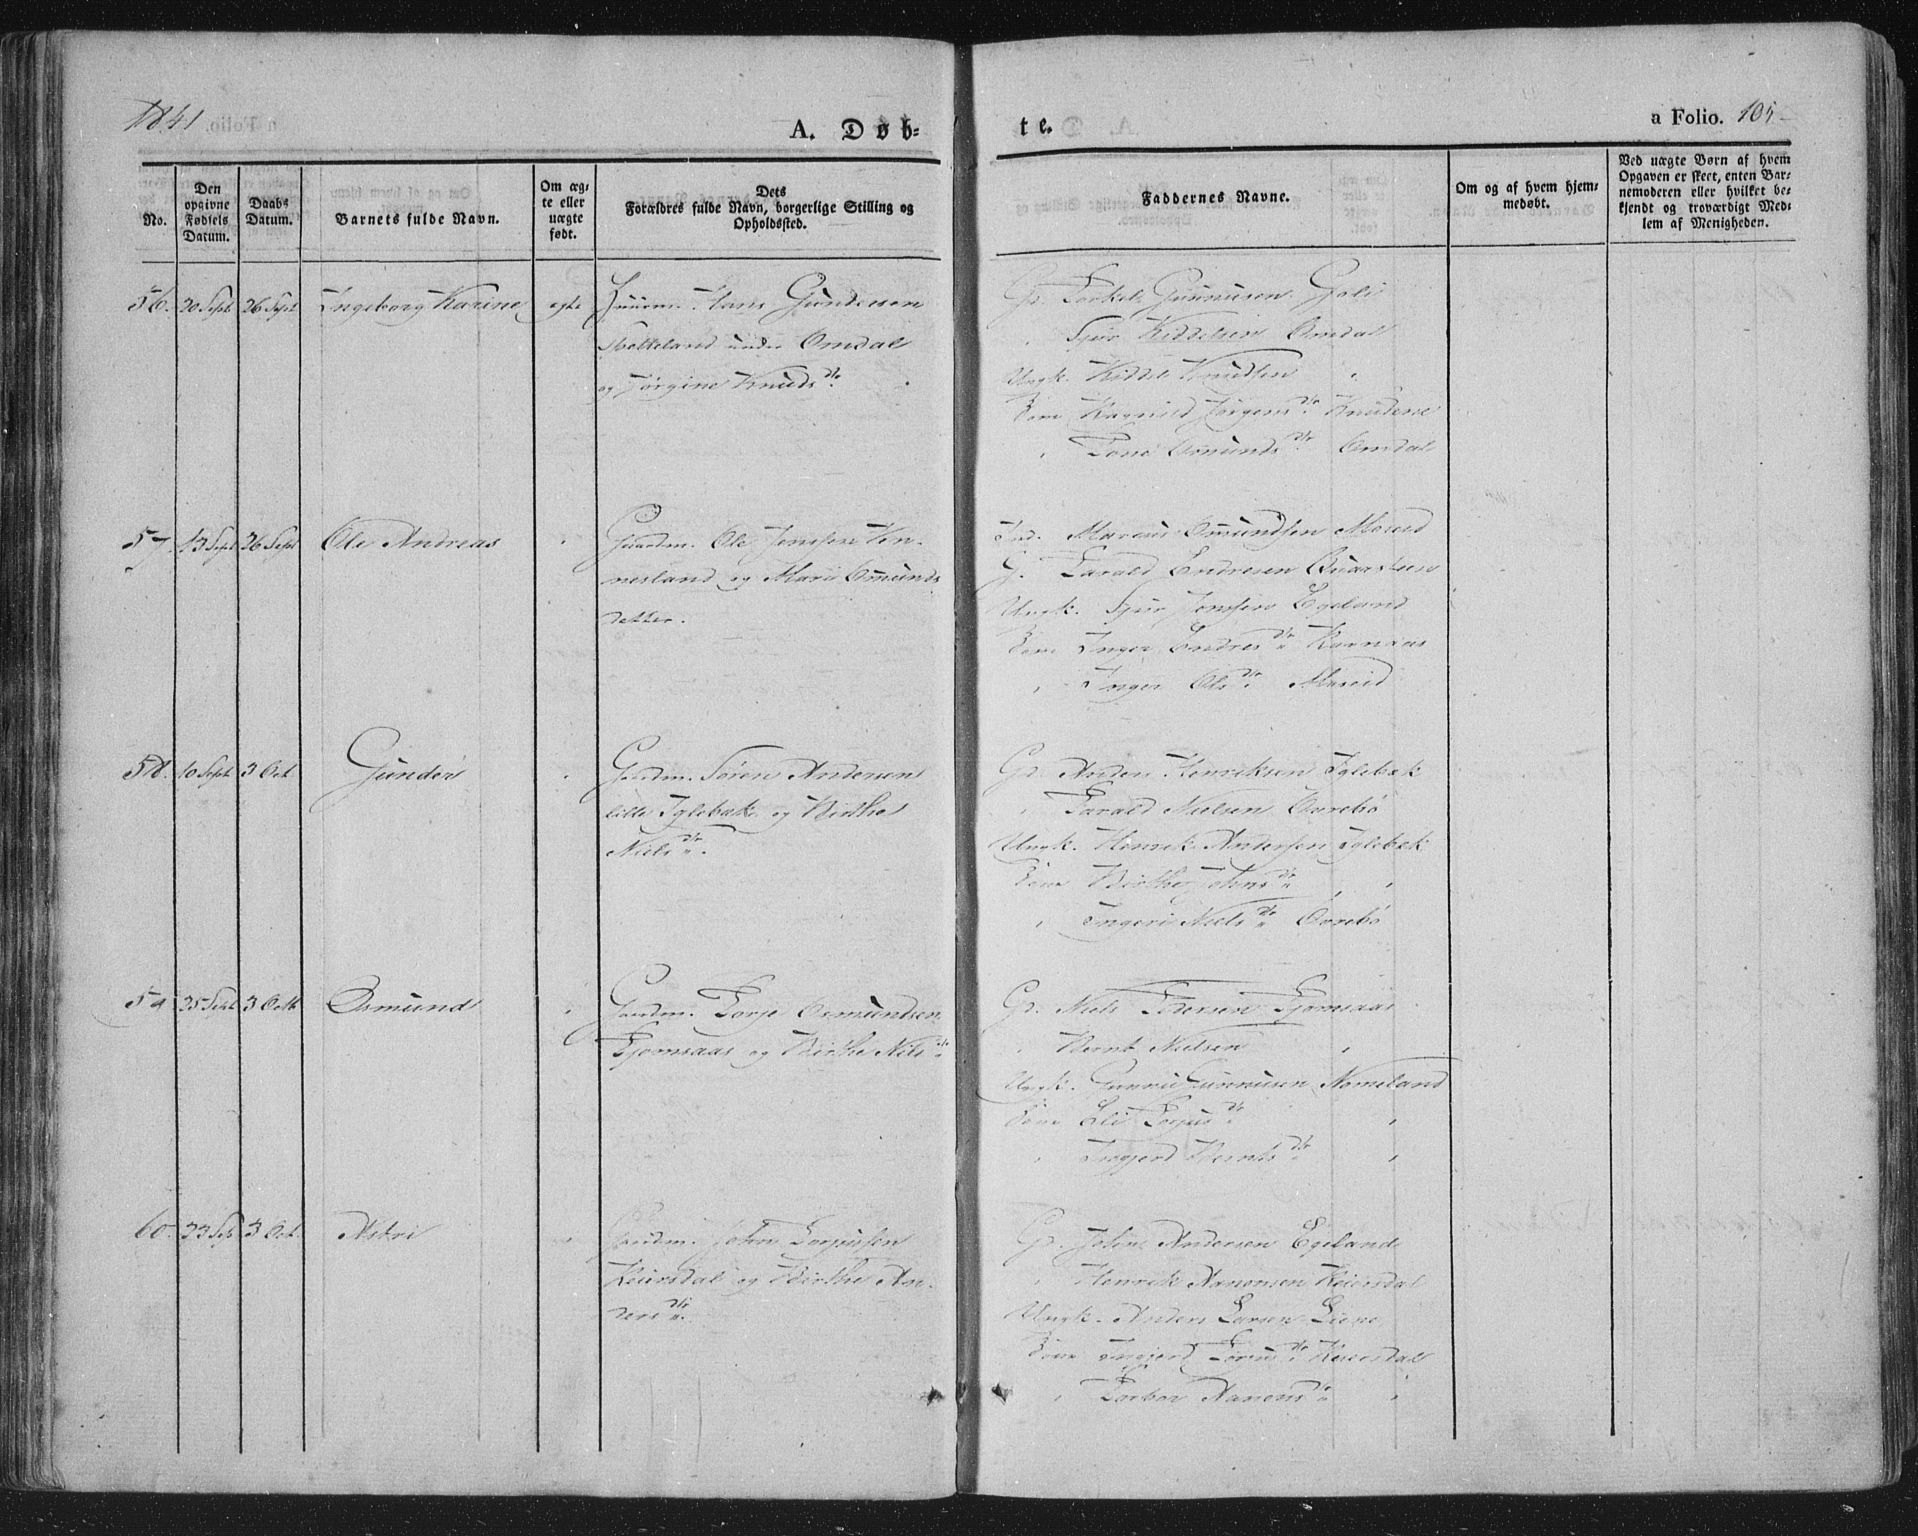 1841
A. Døb-
te.
a Folio. 105
No.
Den opgivne Fødsels Datum.
Daabs Datum.
Barnets fulde Navn.
Om ægte eller uægte født.
Dets Forældres fulde Navn, borgerlige Stilling og Opholdssted.
Faddernes Navne.
Om og af hvem hjemmedøbt.
Ved uægte Børn af hvem Opgaven er skeet, enten Barnemoderen eller hvilket bekjendt og troværdigt Medlem af Menigheden.
56. 20 Sept. 26 Sept Ingeborg Karine ægte Huusm. Hans Gundersen
Stokkeland under Omdal
og Jørgine Knudsdtr.
Gd. Torkel Gunnusen
" Sjur Kiddelsen Omdal
Ungk. Kiddel Knudsen "
Kone Ragnild Jørgensdtr. Knudene
" Tone Omundsdtr. Omdal
57. 13 Sept 26 Sept Ole Andreas " Gaardm. Ole Jensen Ken-
nesland og Mari Omunds
datter.
Ind. Marcus Omundsen Moseid
G. Tarald Endresen Buaasteen
Ungk. Sjur Jensen Egeland
Kone Inger Endresdtr. Ravnaas
" Inger Olsdtr. Moseid
58. 10 Sept 3 Oct. Gunder " Gaardm. Søren Andersen
lille Iglebæk og Birthe
Nielsdtr.
Gd. Anders Henriksen Iglebæk
" Tarald Nielsen Øvrebø
Ungk. Henrik Andersen Iglebæk
Kone Birthe Johnsdtr. " "
" Ingeri Nielsdtr. Øvrebø
59 25 Sept 3 Octb Osmund " Gaardm. Torje Osmundsen
Fjomsaas og Birthe Nilsdtr.
Gd. Niels Pedersen Fjomsaas
" Bernt Nielsen "
Ungk. Gunnu Gunnusen Nomeland
Kone Eli Torjusdtr. "
" Ingjerd Berntsdtr. "
60. 23 Sep. 3 Oct. Askri " Gaardm. John Torjussen
Keiersdal og Birthe An-
dersdtr.
Gd. John Andersen Egeland
" Henrik Aanonsen Keiersdal
Ungk. Anders Larsen Liene
Kone Ingjerd Torjusdtr. Keiersdal
" Torbor Aanensdtr. "